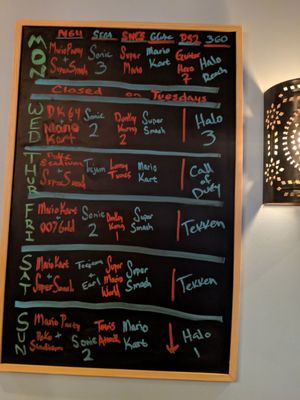 N64 SEGA SNES GCube PS2 360
MON
Mario Party + Super Smash
Sonic 3
Super Mario
Mario Kart
Guitar Hero
Halo Reach
Closed on Tuesdays
WED
DK64 Mario Kart
Sonic 2
Donkey Kong 2
Super Smash
Halo 3
THUR
Stadium + Super Smash
Looney Tunes
Mario Kart
Call of Duty
FRI
Mario Kart + 007 Gold
Sonic 2
Donkey Kong 1
Super Smash
Tekken
SAT
Mario Kart + Super Smash
Toejam + Earl
Super Mario World
Super Smash
Tekken
SUN
Mario Party + Poke Stadium
Sonic 2
Mario Kart
Halo 1